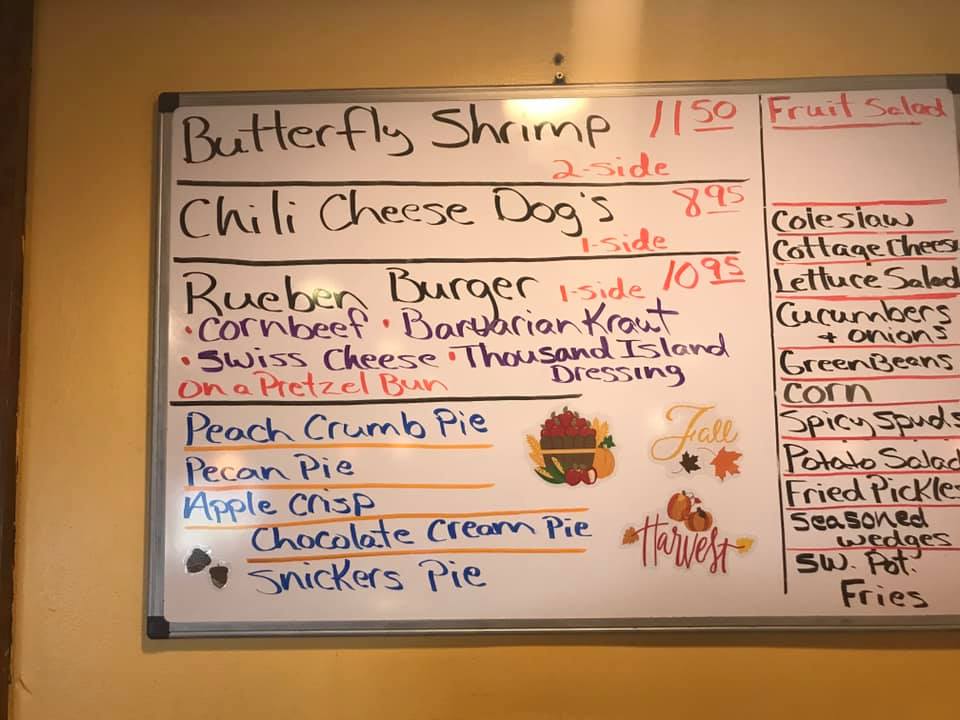 Butterfly Shrimp 11 50
2-side
Chili Cheese Dog's 8 95
1-side
Rueben Burger 1-side 10 95
• Cornbeef • Barvarian Kraut
• Swiss Cheese • Thousand Island
Dressing
On a Pretzel Bun
Peach Crumb Pie
Pecan Pie
Apple Crisp
Chocolate Cream Pie
Snickers Pie
Fall
Harvest
Fruit Salad
Coleslaw
Cottage Cheese
Lettuce Salad
Cucumbers
+ onions
Green Beans
Corn
Spicy spuds
Potato Salad
Fried Pickles
Seasoned
wedges
SW. Pot.
Fries